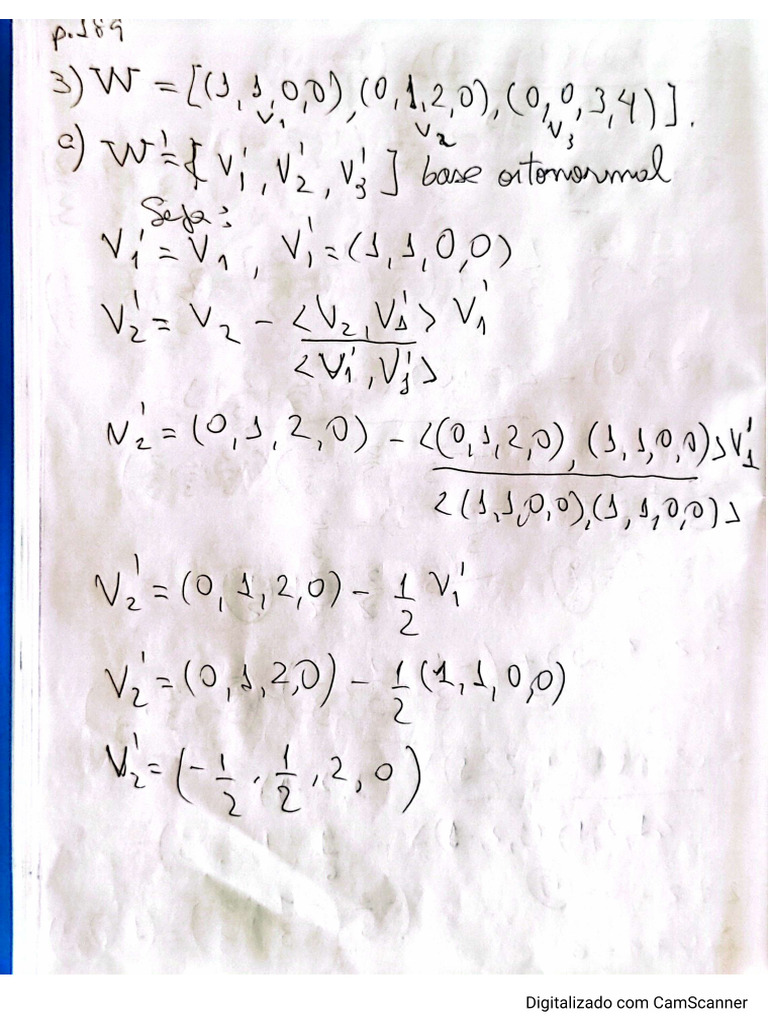 p.189
3) W = [(1,1,0,0),(0,1,2,0),(0,0,3,4)].
V1 V2 V3
a) W' = {V1', V2', V3'] base ortonormal
Seja:
V1' = V1, V1' = (1,1,0,0)
V2' = V2 - <V2,V1'> V1'
<V1',V1'>
V2' = (0,1,2,0) - <(0,1,2,0),(1,1,0,0)>V1'
<(1,1,0,0),(1,1,0,0)>
V2' = (0,1,2,0) - 1/2 V1'
V2' = (0,1,2,0) - 1/2 (1,1,0,0)
V2' = (-1/2, 1/2, 2, 0)
Digitalizado com CamScanner